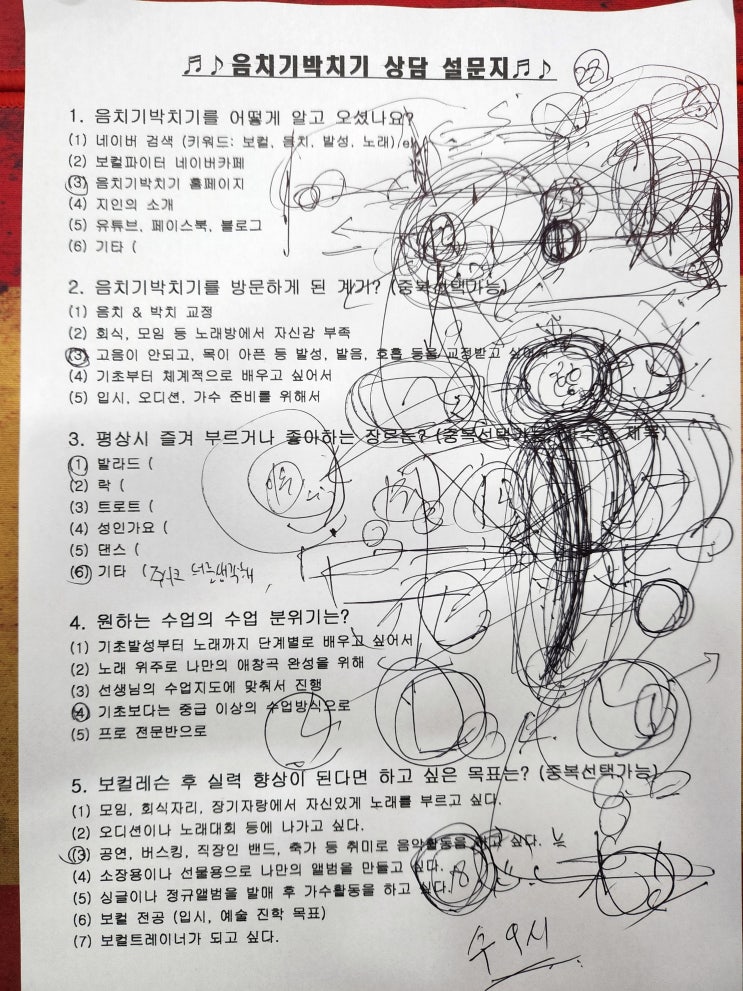 ♬♪음치기박치기 상담 설문지♬♪
1. 음치기박치기를 어떻게 알고 오셨나요?
(1) 네이버 검색 (키워드: 보컬, 음치, 발성, 노래)
(2) 보컬파이터 네이버카페
(3) 음치기박치기 홈페이지
(4) 지인의 소개
(5) 유튜브, 페이스북, 블로그
(6) 기타 (
2. 음치기박치기를 방문하게 된 계기? (중복선택가능)
(1) 음치 & 박치 교정
(2) 회식, 모임 등 노래방에서 자신감 부족
(3) 고음이 안되고, 목이 아픈 등 발성, 발음, 호흡 등을 교정받고 싶어서
(4) 기초부터 체계적으로 배우고 싶어서
(5) 입시, 오디션, 가수 준비를 위해서
3. 평상시 즐겨 부르거나 좋아하는 장르는? (중복선택가능
(1) 발라드 (
(2) 락 (
(3) 트로트 (
(4) 성인가요 (
(5) 댄스 (
(6) 기타 (
4. 원하는 수업의 수업 분위기는?
(1) 기초발성부터 노래까지 단계별로 배우고 싶어서
(2) 노래 위주로 나만의 애창곡 완성을 위해
(3) 선생님의 수업지도에 맞춰서 진행
(4) 기초보다는 중급 이상의 수업방식으로
(5) 프로 전문반으로
5. 보컬레슨 후 실력 향상이 된다면 하고 싶은 목표는? (중복선택가능)
(1) 모임, 회식자리, 장기자랑에서 자신있게 노래를 부르고 싶다.
(2) 오디션이나 노래대회 등에 나가고 싶다.
(3) 공연, 버스킹, 직장인 밴드, 축가 등 취미로 음악활동을 하고 싶다.
(4) 소장용이나 선물용으로 나만의 앨범을 만들고 싶다.
(5) 싱글이나 정규앨범을 발매 후 가수활동을 하고 싶다.
(6) 보컬 전공 (입시, 예술 진학 목표)
(7) 보컬트레이너가 되고 싶다.